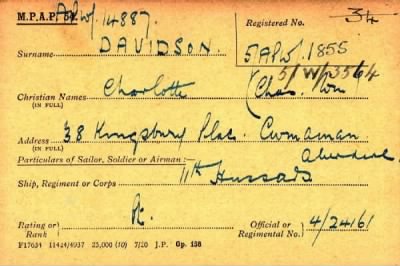 M.P.A.P. 54. APW/14887.
Registered No. 34
DAVIDSON. 5APW/1855
Surname
5/W/3564
Christian Names Charlotte (Chas. Wm
(IN FULL)
Address 38 Kingsbury Place. Cwmaman.
(IN FULL) Aberdare.
Particulars of Sailor, Soldier or Airman :—
Ship, Regiment or Corps 11th Hussars
Rating or Rank Pte. Official or Regimental No. 4/24161
F17634 11424/4937 25,000 (10) 7/20 J.P. Gp. 138